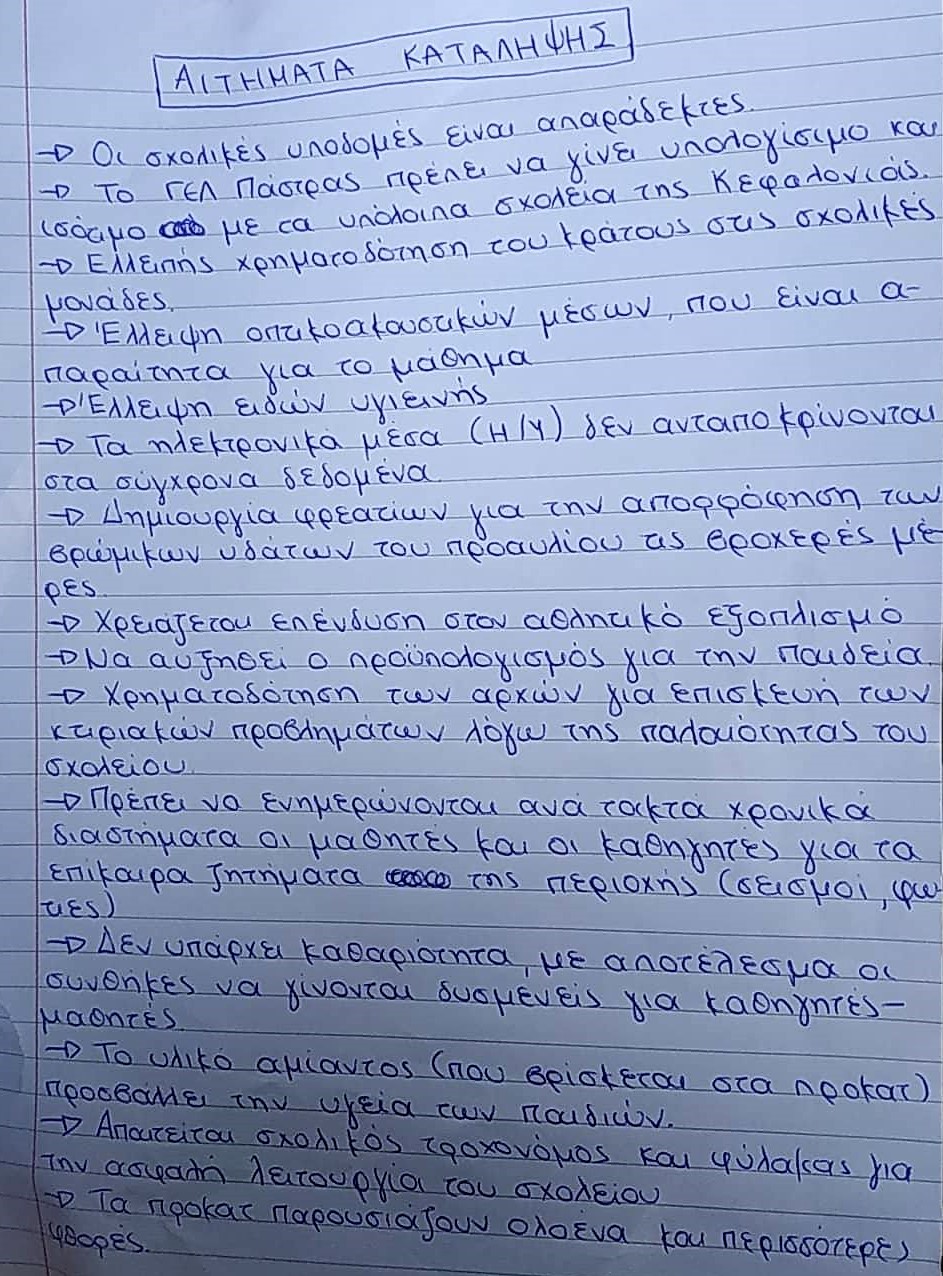 ΑΙΤΗΜΑΤΑ ΚΑΤΑΛΗΨΗΣ
→ Οι σχολικές υποδομές είναι απαράδεκτες.
→ Το ΓΕΛ Πάστρας πρέπει να γίνει υπολογίσιμο και
ισότιμο με τα υπόλοιπα σχολεία της Κεφαλονιάς.
→ Ελλειπής χρηματοδότηση του κράτους στις σχολικές
μονάδες.
→ Έλλειψη οπτικοακουστικών μέσων, που είναι α-
παραίτητα για το μάθημα
→ Έλλειψη ειδών υγιεινής
→ Τα ηλεκτρονικά μέσα (Η/Υ) δεν ανταποκρίνονται
στα σύγχρονα δεδομένα.
→ Δημιουργία φρεατίων για την απορρόφηση των
βρώμικων υδάτων του προαυλίου τις βροχερές μέ-
ρες.
→ Χρειάζεται επένδυση στον αθλητικό εξοπλισμό
→ Να αυξηθεί ο προϋπολογισμός για την παιδεία.
→ Χρηματοδότηση των αρχών για επισκευή των
κτιριακών προβλημάτων λόγω της παλαιότητας του
σχολείου.
→ Πρέπει να ενημερώνονται ανά τακτά χρονικά
διαστήματα οι μαθητές και οι καθηγητές για τα
επίκαιρα ζητήματα της περιοχής (σεισμοί, φω-
τιές)
→ Δεν υπάρχει καθαριότητα, με αποτέλεσμα οι
συνθήκες να γίνονται δυσμενείς για καθηγητές-
μαθητές.
→ Το υλικό αμίαντος (που βρίσκεται στα προκατ)
προσβάλλει την υγεία των παιδιών.
→ Απαιτείται σχολικός τροχονόμος και φύλακας για
την ασφαλή λειτουργία του σχολείου
→ Τα προκατ παρουσιάζουν ολοένα και περισσότερες
φθορές.